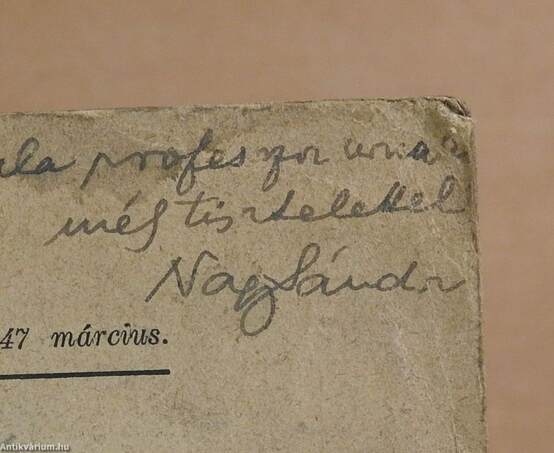 ala professzor urna
mély tisztelettel
Nagy Sándor
47 március.
Antikvárium.hu